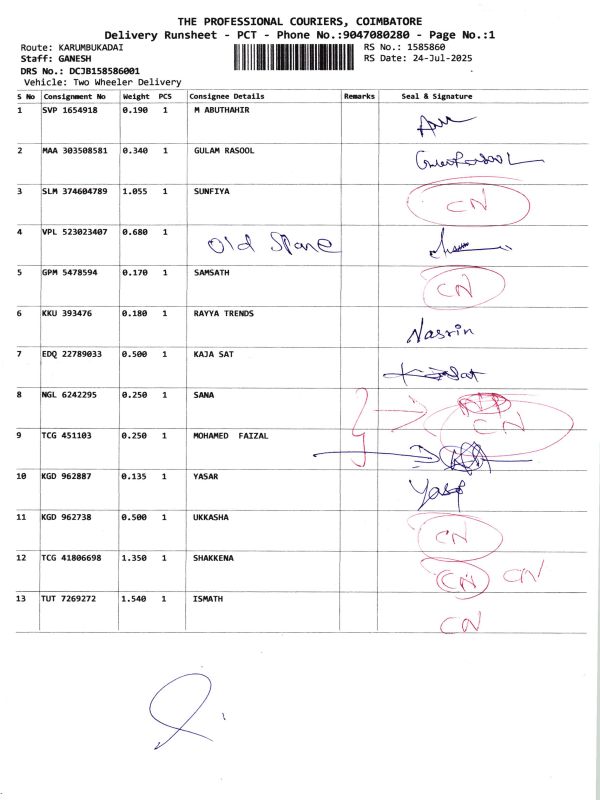 THE PROFESSIONAL COURIERS, COIMBATORE
Delivery Runsheet - PCT - Phone No.:9047080280 - Page No.:1
Route: KARUMBUKADAI RS No.: 1585860
Staff: GANESH RS Date: 24-Jul-2025
DRS No.: DCJB158586001
Vehicle: Two Wheeler Delivery
S No Consignment No Weight PCS Consignee Details Remarks Seal & Signature
1 SVP 1654918 0.190 1 M ABUTHAHIR
2 MAA 303508581 0.340 1 GULAM RASOOL
3 SLM 374604789 1.055 1 SUNFIYA CN
4 VPL 523023407 0.680 1 Old
5 GPM 5478594 0.170 1 SAMSATH CN
6 KKU 393476 0.180 1 RAYYA TRENDS Nasrin
7 EDQ 22789033 0.500 1 KAJA SAT
8 NGL 6242295 0.250 1 SANA CN
9 TCG 451103 0.250 1 MOHAMED FAIZAL
10 KGD 962887 0.135 1 YASAR
11 KGD 962738 0.500 1 UKKASHA CN
12 TCG 41806698 1.350 1 SHAKKENA CN CN
13 TUT 7269272 1.540 1 ISMATH CN